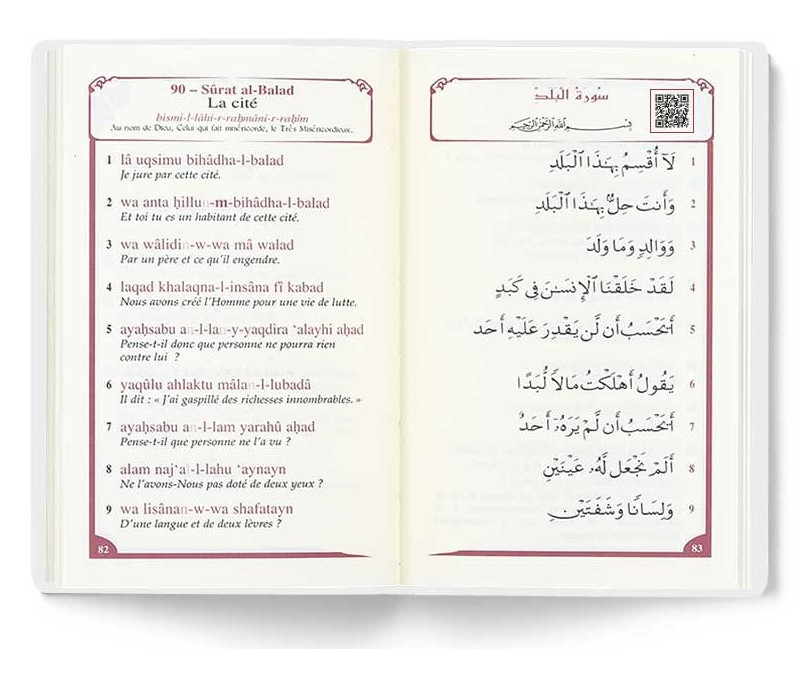 90 – Sûrat al-Balad
La cité
bismi-l-lâhi-r-raḥmâni-r-raḥîm
Au nom de Dieu, Celui qui fait miséricorde, le Très Miséricordieux.
1 lâ uqsimu bihâdha-l-balad
Je jure par cette cité.
2 wa anta ḥillun-m-bihâdha-l-balad
Et toi tu es un habitant de cette cité.
3 wa wâlidin-w-wa mâ walad
Par un père et ce qu'il engendre.
4 laqad khalaqna-l-insâna fî kabad
Nous avons créé l'Homme pour une vie de lutte.
5 ayaḥsabu an-l-lan-y-yaqdira ‘alayhi aḥad
Pense-t-il donc que personne ne pourra rien
contre lui ?
6 yaqûlu ahlaktu mâlan-l-lubadâ
Il dit : « J'ai gaspillé des richesses innombrables. »
7 ayaḥsabu an-l-lam yarahû aḥad
Pense-t-il que personne ne l'a vu ?
8 alam naj‘al-l-lahu ‘aynayn
Ne l'avons-Nous pas doté de deux yeux ?
9 wa lisânan-w-wa shafatayn
D'une langue et de deux lèvres ?
82
سُورَةُ الْبَلَدِ
بِسْمِ اللَّهِ الرَّحْمَٰنِ الرَّحِيمِ
1 لَآ أُقْسِمُ بِهَٰذَا ٱلْبَلَدِ
2 وَأَنتَ حِلٌّۢ بِهَٰذَا ٱلْبَلَدِ
3 وَوَالِدٍ وَمَا وَلَدَ
4 لَقَدْ خَلَقْنَا ٱلْإِنسَٰنَ فِى كَبَدٍ
5 أَيَحْسَبُ أَن لَّن يَقْدِرَ عَلَيْهِ أَحَدٌ
6 يَقُولُ أَهْلَكْتُ مَالًا لُّبَدًا
7 أَيَحْسَبُ أَن لَّمْ يَرَهُۥٓ أَحَدٌ
8 أَلَمْ نَجْعَل لَّهُۥ عَيْنَيْنِ
9 وَلِسَانًا وَشَفَتَيْنِ
83